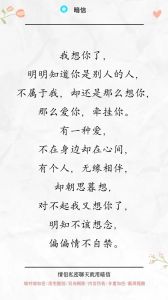 暗信
我想你了，
明明知道你是别人的人，
不属于我，却还是那么想你，
那么爱你，牵挂你。
有一种爱，
不在身边却在心间，
有个人，无缘相伴，
却朝思暮想，
对不起我又想你了，
明知不该想念，
偏偏情不自禁。
情侣私密聊天就用暗信